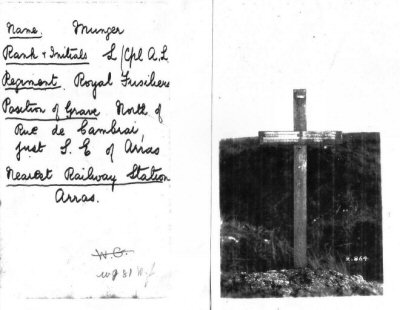 Name. Munger
Rank & Initials L/Cpl A.L.
Regiment. Royal Fusiliers
Position of Grave North of
Rue de Cambrai,
just S.E of Arras
Nearest Railway Station
Arras.
W.G.